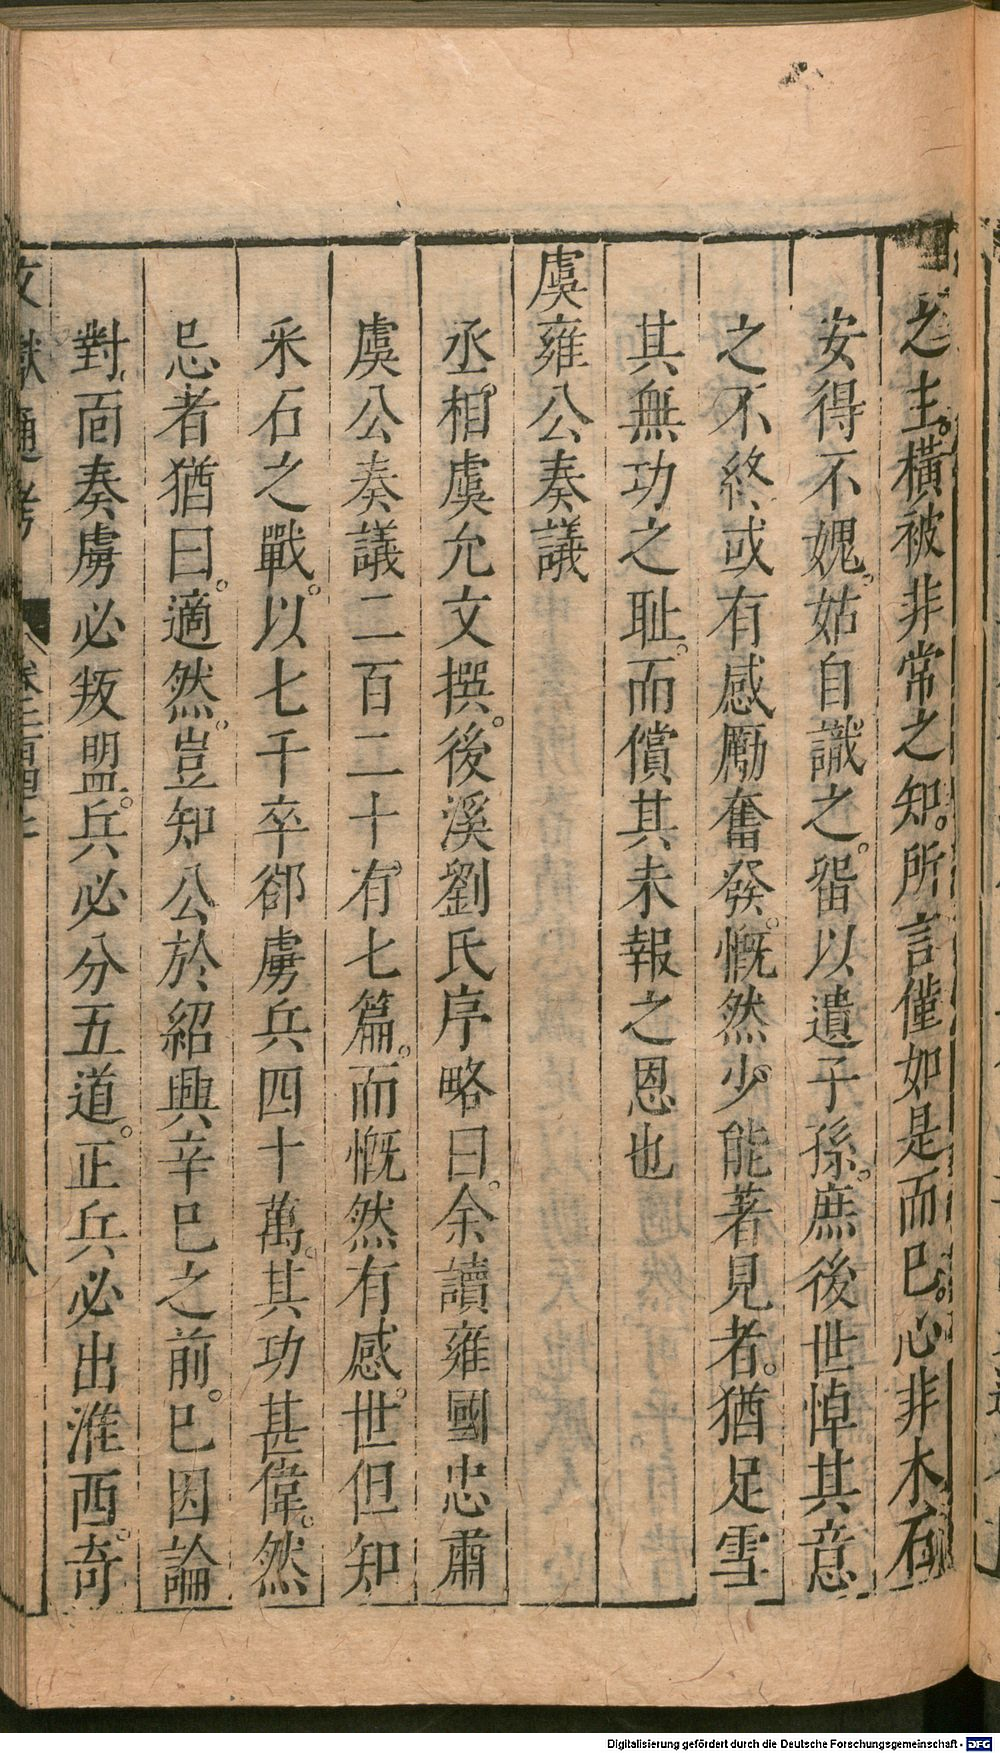 之主。橫被非常之知。所言僅如是而已。心非木石
安得不媿。姑自識之。畱以遺子孫。庶後世悼其意
之不終或有感勵奮發。慨然少能著見者。猶足雪
其無功之耻。而償其未報之恩也
虞雍公奏議
丞相虞允文撰。後溪劉氏序略曰。余讀雍國忠肅
虞公奏議二百二十有七篇。而慨然有感。世但知
采石之戰。以七千卒郤虜兵四十萬。其功甚偉。然
忌者猶曰。適然。豈知公於紹興辛巳之前。已因論
對。面奏虜必叛盟。兵必分五道。正兵必出淮西。奇
文獻通考
八
Digitalisierung gefördert durch die Deutsche Forschungsgemeinschaft - DFG